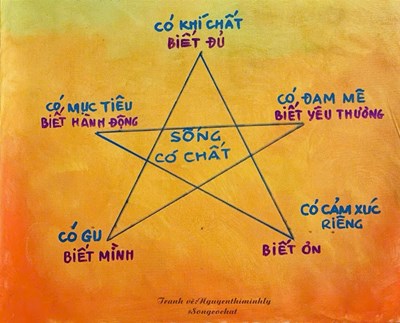 CÓ KHÍ CHẤT
BIẾT ĐỦ
CÓ MỤC TIÊU
BIẾT HÀNH ĐỘNG
CÓ ĐAM MÊ
BIẾT YÊU THƯƠNG
SỐNG
CÓ CHẤT
CÓ GU
BIẾT MÌNH
CÓ CẢM XÚC
RIÊNG
BIẾT ƠN
Tranh vẽ/Nguyenthiminhly
sSongcochat